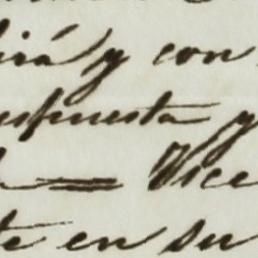 irá y con
espuesta y
= Vice
te en su